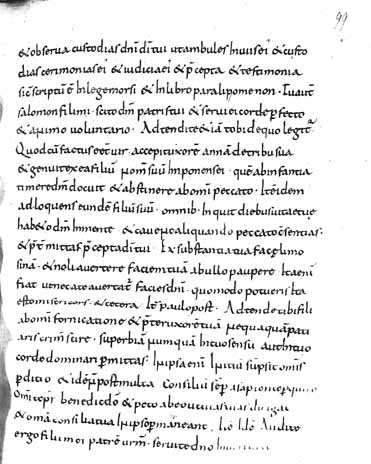 99
& observa custodias dni di tui ut ambules in viis ei' & custo
dias cerimonias ei' & iudicia ei' & p̄cepta & testimonia
sic̄ scriptū ē in lege morsi & in libro paralipomenon · Tu aut̄
salomon fili mi · scito dm̄ patris tui & servi ei corde p̄fecto
& animo voluntario · Adtendite & iā tobi de quo legit̄
Quod cū factus e&̄ vir · accepit uxorē annā de tribu sua
& genuit ex ea filiū nom̄ suū inponens ei · quē ab infantia
timere dm̄ docuit & abstinere ab om̄i peccato · Itē idem
adloquens eundē filiū suū · omnib· inquit diebus vitae tue
habe · o dm̄ in mente · & cave ne aliquando peccato c̄sentias:
& p̄t̄mittas p̄cepta di tui · Ex substantia tua fac elimo
sinā · & noli avertere faciem tuā ab ullo paupere · Ita eni
fiat ut nec a te avertat̄ facies dni · quomodo potueris ita
esto misericors · & c&era · Itē paulo post · Adtende tibi fili
ab om̄i fornicatione & p̄ter uxorē tuā nequaquā pati
aris crim̄ scire · superbiā numquā in tuo sensu aut in tuo
corde dominari p̄mittas: In ipsa eni initiū supsit om̄is
p̄ditio & idē post multa consiliū sēp̄ a sapiente
Omi tēpr benedic dō & p&e ab eo ut vias tuas dirigat
& om̄a consilia tua in ipso p̄maneant
ergo filii mei patrē vr̄m · servite dn̄o in